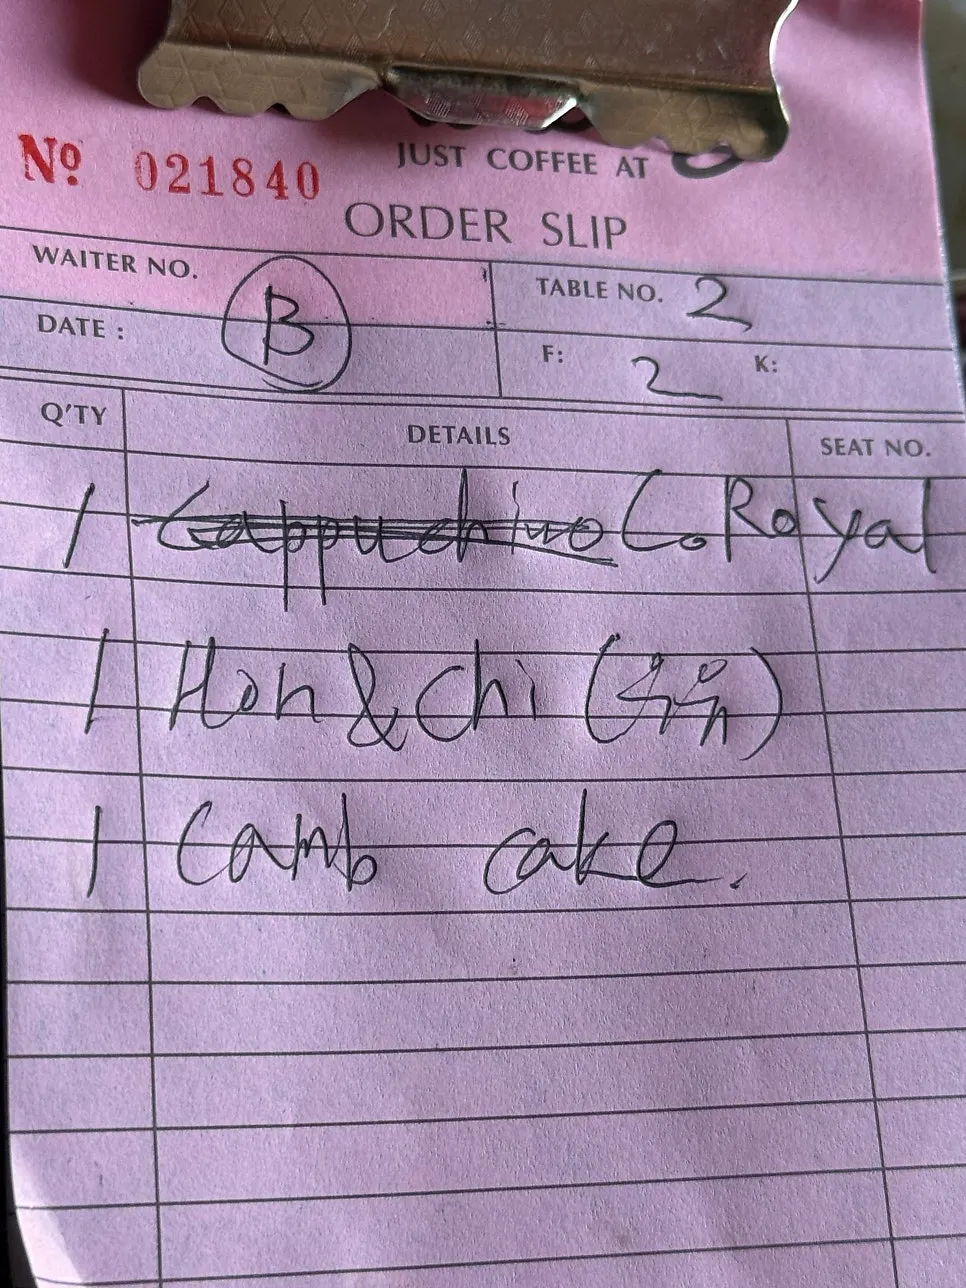 Nº 021840 JUST COFFEE AT
ORDER SLIP
WAITER NO. B TABLE NO. 2
DATE : F: 2 K:
Q'TY DETAILS SEAT NO.
1 Cappuchino C. Royal
1 Hon & Chi
1 Camb cake.